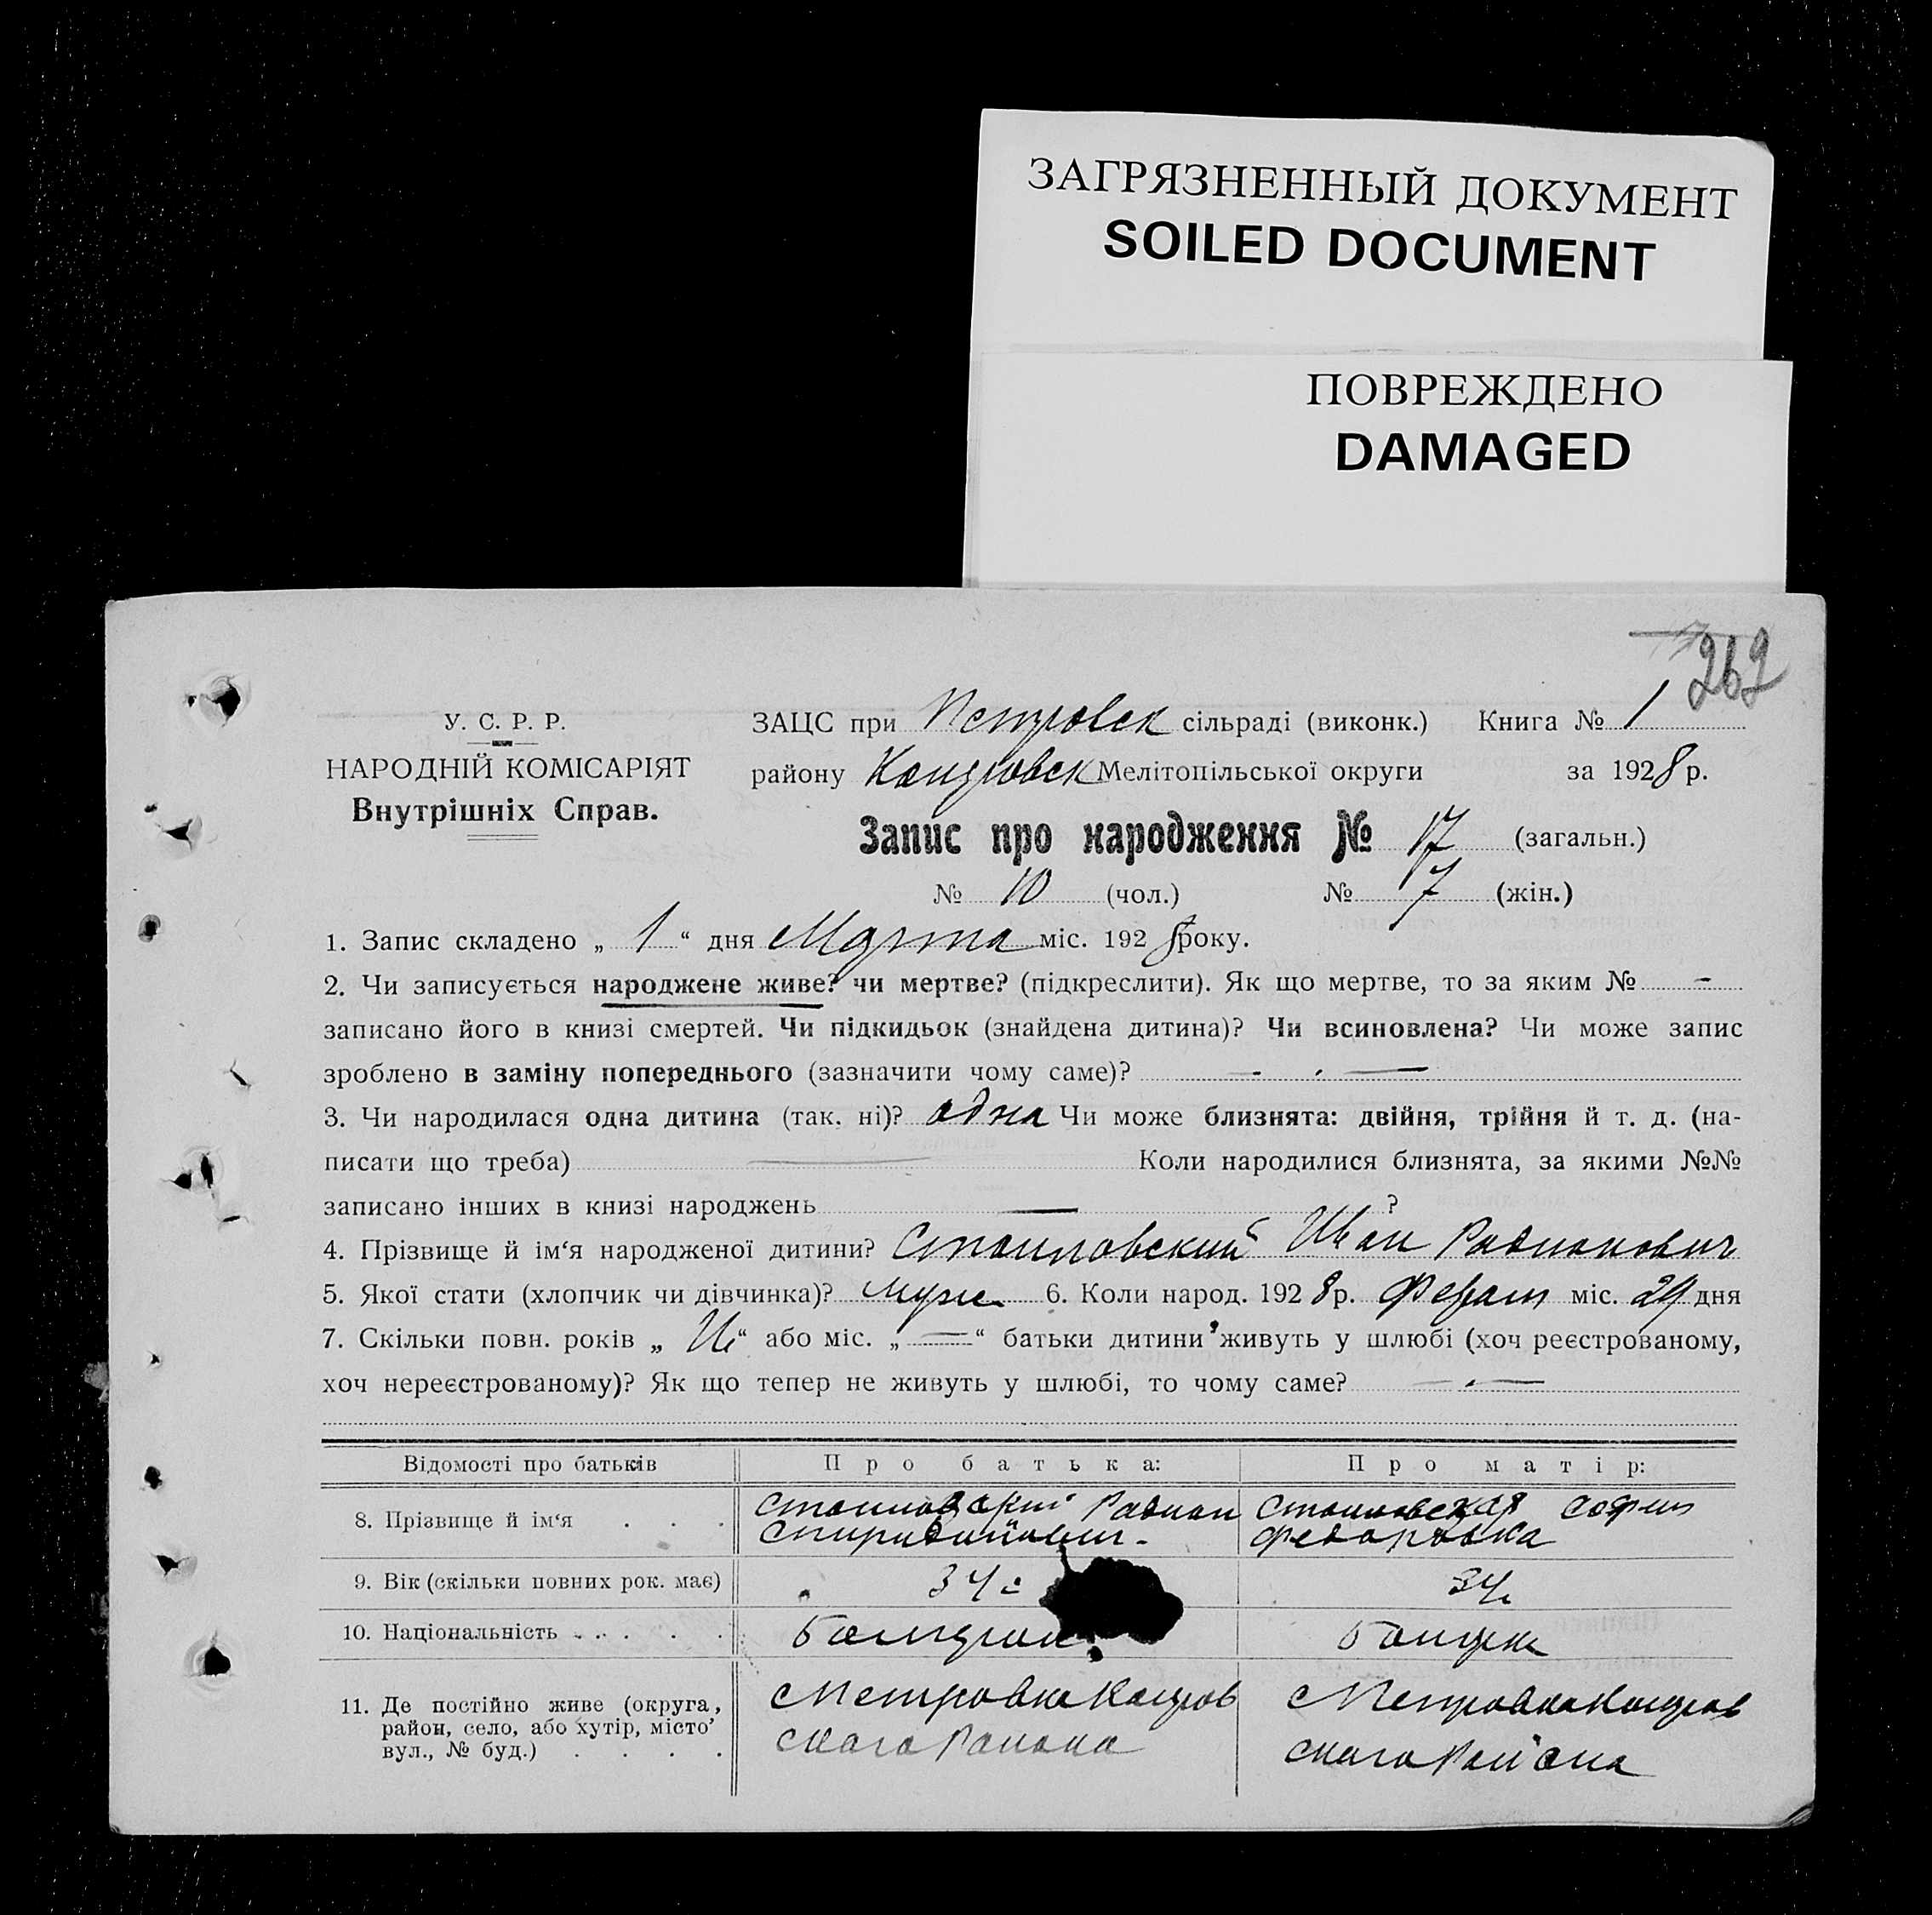 ЗАГРЯЗНЕННЫЙ ДОКУМЕНТ
SOILED DOCUMENT
ПОВРЕЖДЕНО
DAMAGED
262
У. С. Р. Р.
НАРОДНІЙ КОМІСАРІЯТ
Внутрішніх Справ.
ЗАЦС при Петровск сільраді (виконк.) Книга № 1
району Мелітопільської округи за 1928 р.
Запис про народження № 17 (загальн.)
№ 10 (чол.) № 7 (жін.)
1. Запис складено „ 1 “ дня Марта міс. 1928 року.
2. Чи записується народжене живе? чи мертве? (підкреслити). Як що мертве, то за яким № -
записано його в книзі смертей. Чи підкидьок (знайдена дитина)? Чи всиновлена? Чи може запис
зроблено в заміну попереднього (зазначити чому саме)? - . —
3. Чи народилася одна дитина (так, ні)? одна Чи може близнята: двійня, трійня й т. д. (на-
писати що треба) — Коли народилися близнята, за якими №№
записано інших в книзі народжень — ?
4. Прізвище й ім‘я народженої дитини? Иван Радионович
5. Якої стати (хлопчик чи дівчинка)? муж. 6. Коли народ. 1928 р. міс. 29 дня
7. Скільки повн. років „ “ або міс. „ — “ батьки дитини живуть у шлюбі (хоч реєстрованому,
хоч нереєстрованому)? Як що тепер не живуть у шлюбі, то чому саме? — . —
Відомості про батьків
Про батька:
Про матір:
8. Прізвище й ім‘я . . .
Радион
София
Федоровна
9. Вік (скільки повних рок. має)
34
34
10. Національність . . . . . .
11. Де постійно живе (округа,
район, село, або хутір, місто’
вул., № буд.) . . . .
Петровка
скаго Района
Петровка
скаго Района